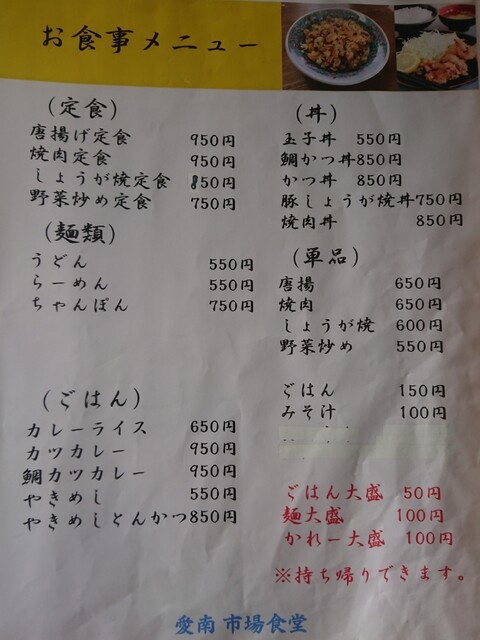 お食事メニュー
(定食)
唐揚げ定食 950円
焼肉定食 950円
しょうが焼定食 850円
野菜炒め定食 750円
(麺類)
うどん 550円
らーめん 550円
ちゃんぽん 750円
(ごはん)
カレーライス 650円
カツカレー 950円
鯛カツカレー 950円
やきめし 550円
やきめしとんかつ850円
(丼)
玉子丼 550円
鯛かつ丼850円
かつ丼 850円
豚しょうが焼丼750円
焼肉丼 850円
(単品)
唐揚 650円
焼肉 650円
しょうが焼 600円
野菜炒め 550円
ごはん 150円
みそ汁 100円
ごはん大盛 50円
麺大盛 100円
かれー大盛 100円
※持ち帰りできます。
愛南 市場食堂